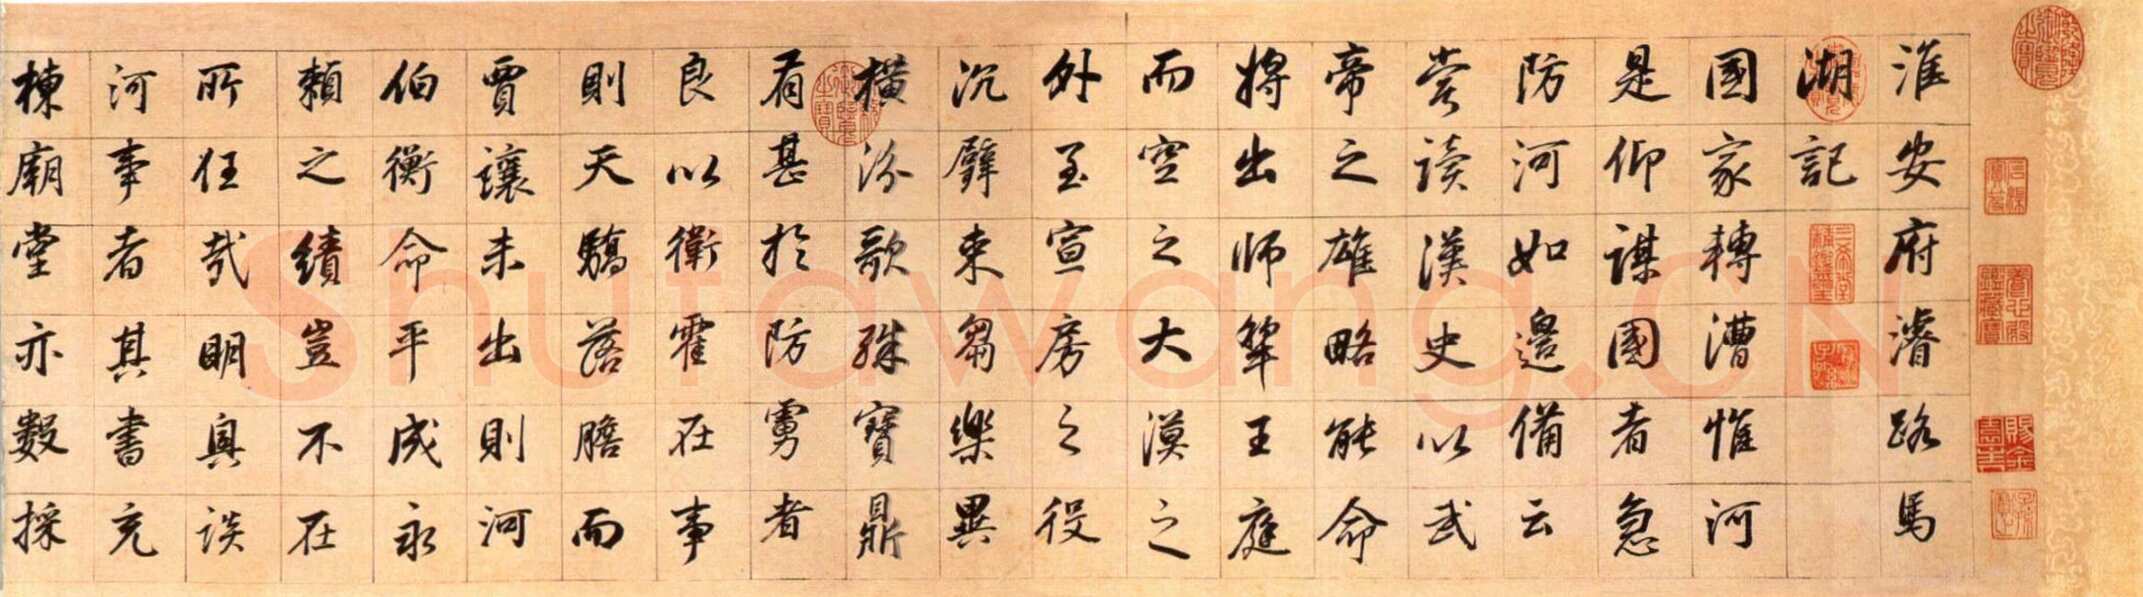 淮安府濬路馬
湖記
國家轉漕惟河
是仰謀國者急
防河如邊備云
嘗讀漢史以武
帝之雄略能命
將出師犂王庭
而空之大漠之
外至宣房之役
沉璧束芻樂異
橫汾歌殊寶鼎
有甚於防雩者
良以衛霍在事
則天驕落膽而
賈讓未出則河
伯衡命平成永
賴之績豈不在
所任哉明興談
河事者其書充
棟廟堂亦數採
Shufawang.CN